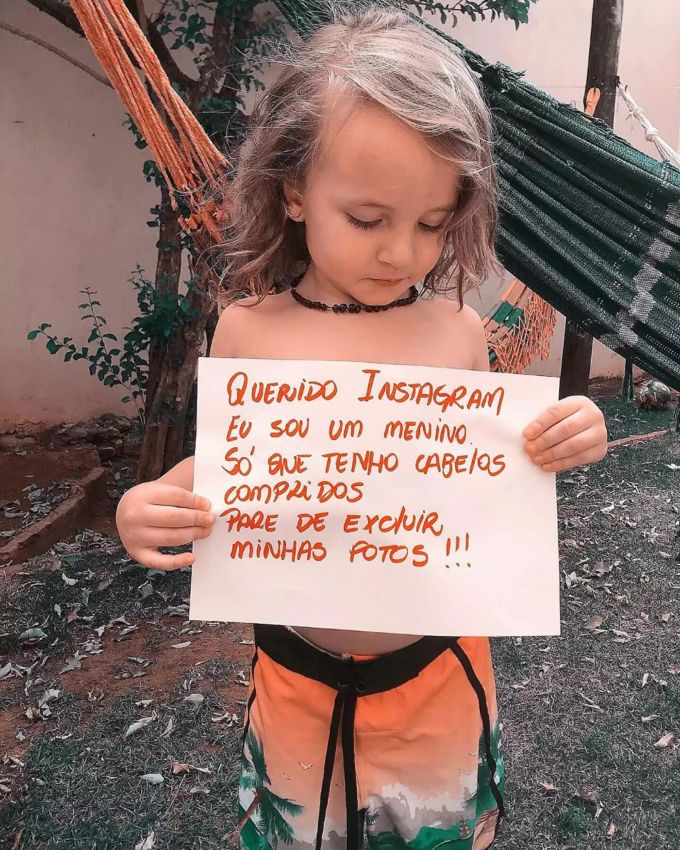 QUERIDO INSTAGRAM
EU SOU UM MENINO.
SÓ QUE TENHO CABELOS
COMPRIDOS
PARE DE EXCLUIR
MINHAS FOTOS !!!